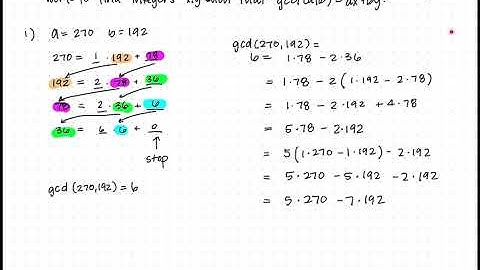 to find integers x, y such that gcd(a,b) = ax+by.
1) a = 270 b = 192
270 = 1 · 192 + 78
192 = 2 · 78 + 36
78 = 2 · 36 + 6
36 = 6 6 + 0
stop
gcd (270,192) = 6
gcd (270,192) =
6 = 1·78 - 2·36
= 1·78 - 2(1·192 - 2·78)
= 1·78 - 2·192 + 4·78
= 5·78 - 2·192
= 5(1·270 - 1·192) - 2·192
= 5·270 - 5·192 - 2·192
= 5·270 - 7·192